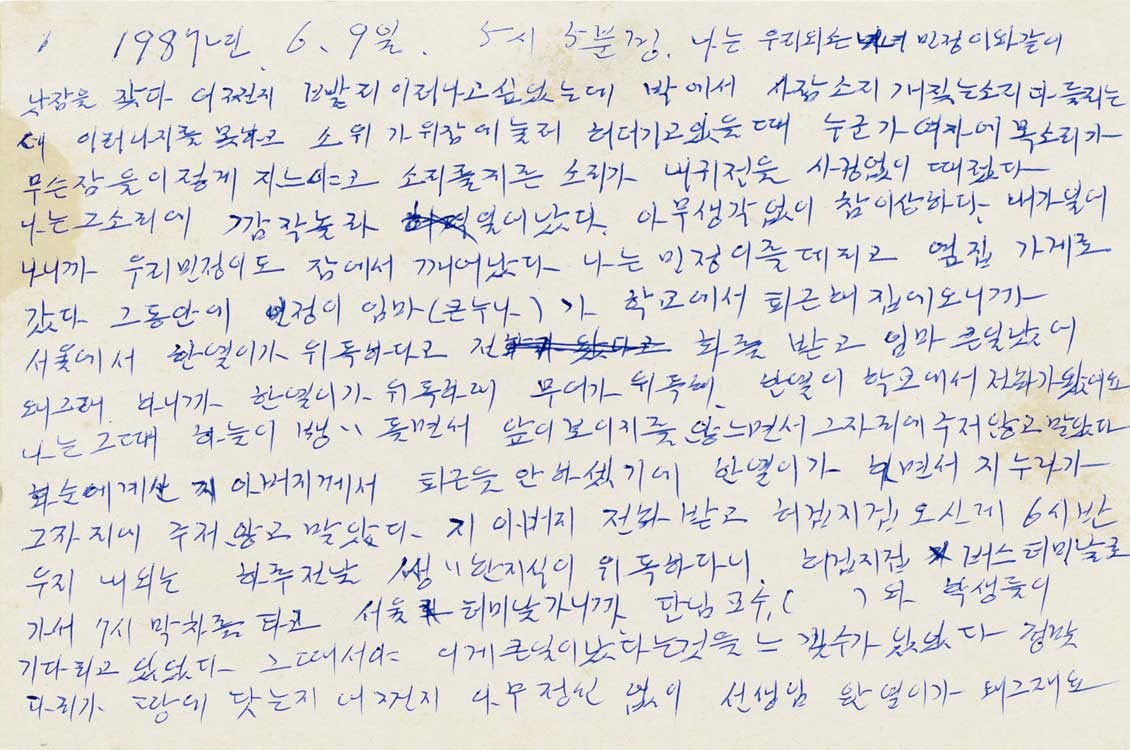 1987년. 6. 9일. 5시 5분경. 나는 우리외손녀 민정이와같이
낮잠을 잤다 어쩐지 이러나고싶었는데 박에서 사람소리 개짖는소리 다 들리는
데 이러나지를 못하고 소위 가위잠에 눌려 허더기고있을때 누군가 여자에 목소리가
무슨잠을 이렇게 자느야고 소리를지른 소리가 내귀전을 사정없이 때렸다
나는그소리에 깜작놀라 일어났다. 아무생각없이 참이상하다. 내가일어
나니까 우리민정이도 잠에서 깨어났다 나는 민정이를데리고 옆집 가게로
갔다 그동안에 민정이 엄마(큰누나)가 학교에서 퇴근해 집에오니까
서울에서 한열이가 위독하다고 전화를 받고 엄마 큰일났어
왜그래 하니까 한열이가 위독하대 무어가 위독해 한열이 학교에서 전화가왔어요
나는그때 하늘이 뺑〃 돌면서 앞이보이지를 않느면서 그자리에 주저않고말았다
화순에계신 아버지께서 퇴근을 안하셨기에 한열이가 하면서 지누나가
그자리에 주저않고 말았다. 지 아버지 전화받고 허겁지겁 오신게 6시반
우리 내외는 하루전날 쌩〃한자식이 위독하다니. 허겁지겁 버스터미날로
가서 7시 막차를 타고 서울 터미날가니까 단님교수( )와 학생들이
기다리고 있었다. 그때서야 이게큰일이났다는것을 느낄수가 있었다 정말
다리가 땅에 닷는지 어쩐지 아무정신 없이 선생님 한열이가 왜그래요